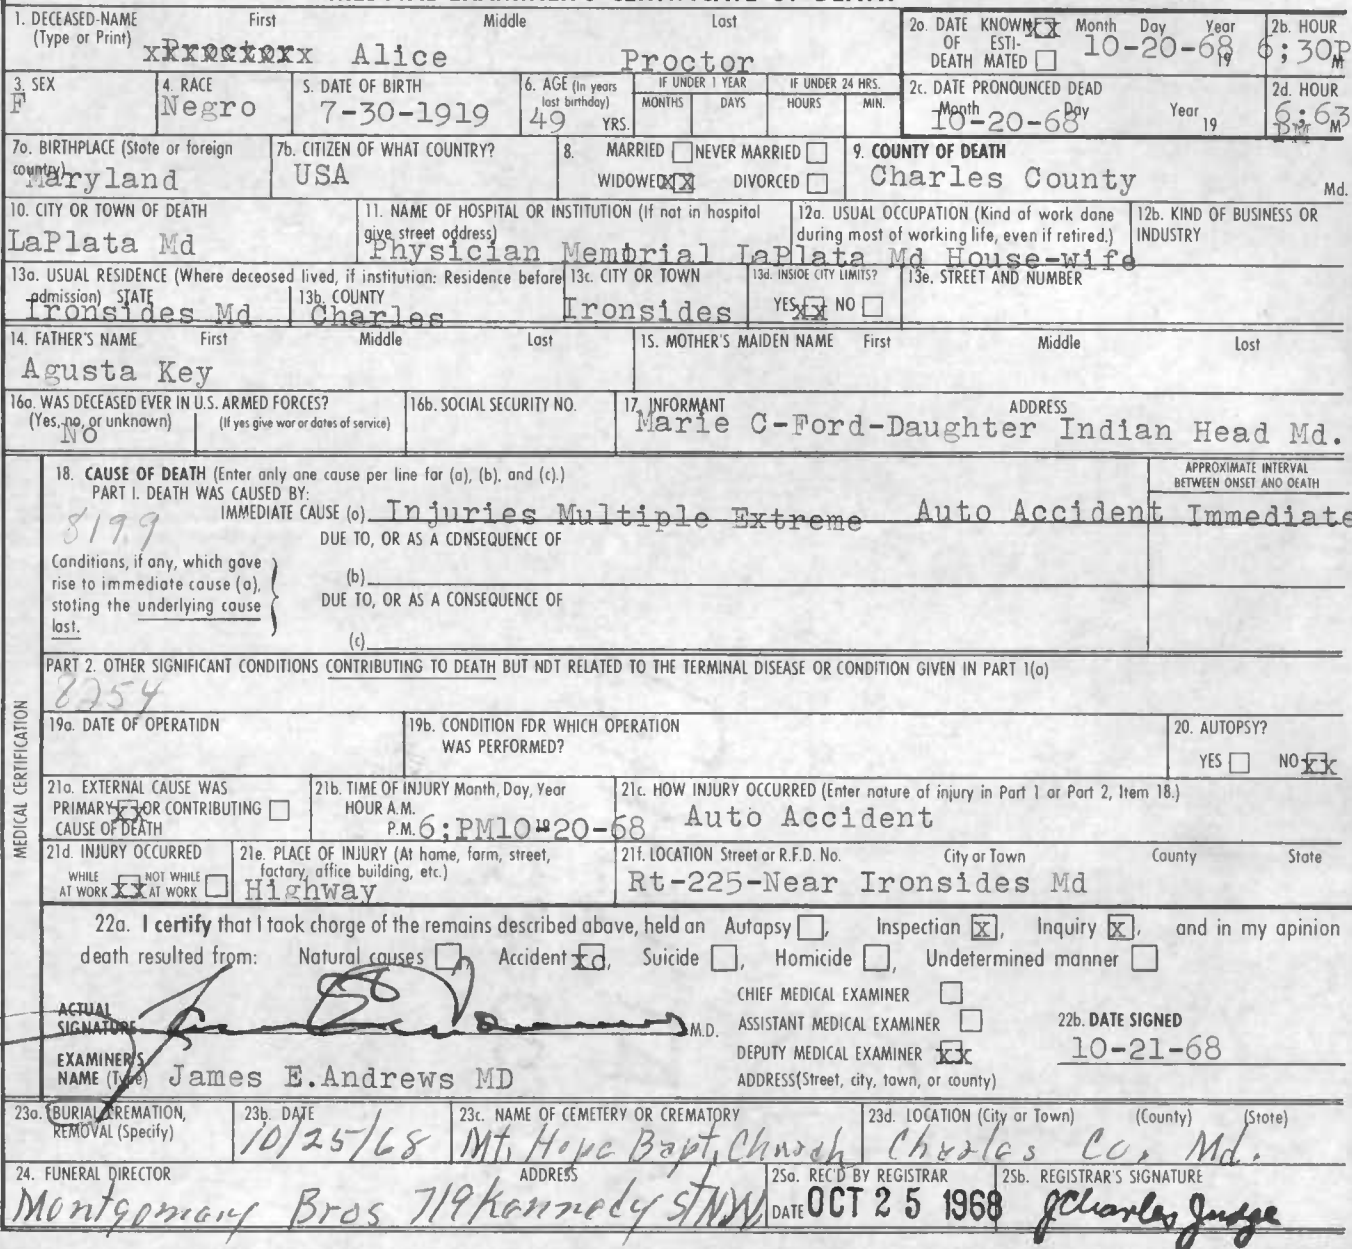 1. DECEASED-NAME First Middle Last
(Type or Print) Alice Proctor
2a. DATE KNOWN XX Month Day Year
OF ESTI-
DEATH MATED 10-20-68 19
2b. HOUR
6;30P M
3. SEX
F
4. RACE
Negro
5. DATE OF BIRTH
7-30-1919
6. AGE (In years
last birthday)
49 YRS.
IF UNDER 1 YEAR
MONTHS DAYS
IF UNDER 24 HRS.
HOURS MIN.
2c. DATE PRONOUNCED DEAD
Month Day Year 19
10-20-68
2d. HOUR
6:63
M
7a. BIRTHPLACE (State or foreign
country)
Maryland
7b. CITIZEN OF WHAT COUNTRY?
USA
8. MARRIED NEVER MARRIED
WIDOWED XX DIVORCED
9. COUNTY OF DEATH
Charles County Md.
10. CITY OR TOWN OF DEATH
LaPlata Md
11. NAME OF HOSPITAL OR INSTITUTION (If not in hospital
give street address)
Physician Memorial LaPlata Md
12a. USUAL OCCUPATION (Kind of work done
during most of working life, even if retired.)
House-wife
12b. KIND OF BUSINESS OR
INDUSTRY
13a. USUAL RESIDENCE (Where deceased lived, if institution: Residence before
admission) STATE
Ironsides Md
13b. COUNTY
Charles
13c. CITY OR TOWN
Ironsides
13d. INSIDE CITY LIMITS?
YES XX NO
13e. STREET AND NUMBER
14. FATHER'S NAME First Middle Last
Agusta Key
15. MOTHER'S MAIDEN NAME First Middle Last
16a. WAS DECEASED EVER IN U.S. ARMED FORCES?
(Yes, no, or unknown) (If yes give war or dates of service)
No
16b. SOCIAL SECURITY NO.
17. INFORMANT ADDRESS
Marie C-Ford-Daughter Indian Head Md.
18. CAUSE OF DEATH (Enter only one cause per line for (a), (b), and (c).)
APPROXIMATE INTERVAL
BETWEEN ONSET AND DEATH
PART I. DEATH WAS CAUSED BY:
IMMEDIATE CAUSE (a) Injuries Multiple Extreme Auto Accident Immediate
8199
DUE TO, OR AS A CONSEQUENCE OF
Conditions, if any, which gave
rise to immediate cause (a),
stating the underlying cause
last.
(b)
DUE TO, OR AS A CONSEQUENCE OF
(c)
PART 2. OTHER SIGNIFICANT CONDITIONS CONTRIBUTING TO DEATH BUT NOT RELATED TO THE TERMINAL DISEASE OR CONDITION GIVEN IN PART 1(a)
8254
MEDICAL CERTIFICATION
19a. DATE OF OPERATION
19b. CONDITION FOR WHICH OPERATION
WAS PERFORMED?
20. AUTOPSY?
YES NO XX
21a. EXTERNAL CAUSE WAS
PRIMARY XX OR CONTRIBUTING
CAUSE OF DEATH
21b. TIME OF INJURY Month, Day, Year
HOUR A.M.
P.M. 6;PM10-20-68
21c. HOW INJURY OCCURRED (Enter nature of injury in Part 1 or Part 2, Item 18.)
Auto Accident
21d. INJURY OCCURRED
WHILE NOT WHILE
AT WORK XX AT WORK
21e. PLACE OF INJURY (At home, farm, street,
factory, office building, etc.)
Highway
21f. LOCATION Street or R.F.D. No. City or Town County State
Rt-225-Near Ironsides Md
22a. I certify that I took charge of the remains described above, held an Autopsy , Inspection X, Inquiry X, and in my opinion
death resulted from: Natural causes , Accident xd, Suicide , Homicide , Undetermined manner
ACTUAL
SIGNATURE M.D.
CHIEF MEDICAL EXAMINER
ASSISTANT MEDICAL EXAMINER
DEPUTY MEDICAL EXAMINER XX
22b. DATE SIGNED
10-21-68
EXAMINER'S
NAME (Type) James E.Andrews MD
ADDRESS(Street, city, town, or county)
23a. BURIAL CREMATION,
REMOVAL (Specify)
23b. DATE
10/25/68
23c. NAME OF CEMETERY OR CREMATORY
Mt. Hope Bapt. Church
23d. LOCATION (City or Town) (County) (State)
Charles Co. Md.
24. FUNERAL DIRECTOR ADDRESS
Montgomery Bros 719 Kennedy St NW
25a. REC'D BY REGISTRAR
DATE OCT 25 1968
25b. REGISTRAR'S SIGNATURE
J Charles Judge